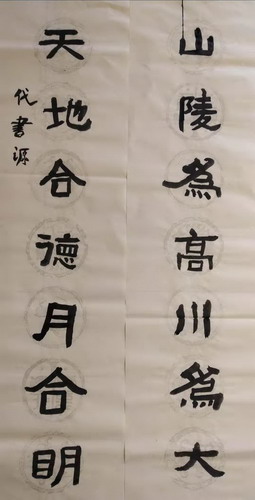 山陵為高川為大
天地合德月合明
代書源